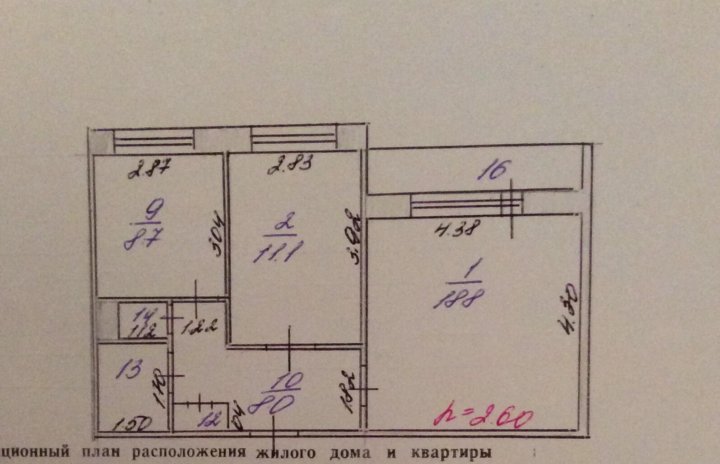 2.87
2.83
16
9
8.7
3.04
2
11.1
3.92
4.38
1
18.8
4.30
14
112
1.22
13
1.70
10
8.0
1.82
12
64
1.50
h=2.60
ционный план расположения жилого дома и квартиры